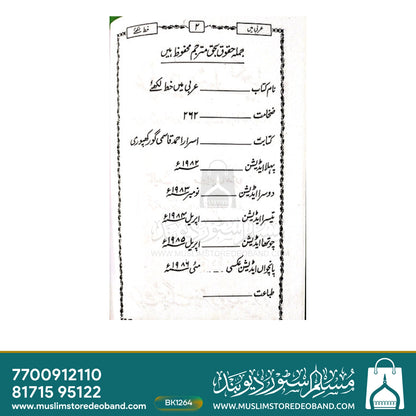 عربی میں
۲
خط لکھئے
جملہ حقوق بحق مترجم محفوظ ہیں
نام کتاب ـــــــ عربی میں خط لکھئے
ضخامت ـــــــ ۲۶۲
کتابت ـــــــ اسرار احمد قاسمی گورکھپوری
پہلا ایڈیشن ـــــــ ۱۹۸۲ء
دوسرا ایڈیشن ـــــــ نومبر ۱۹۸۳ء
تیسرا ایڈیشن ـــــــ اپریل ۱۹۸۴ء
چوتھا ایڈیشن ـــــــ اپریل ۱۹۸۵ء
پانچواں ایڈیشن عکسی ـــــــ مئی ۱۹۸۶ء
طباعت ـــــــ
7700912110
81715 95122
www.muslimstoredeoband.com
BK1264
مسلم اسٹور دیوبند
WWW.MUSLIMSTOREDEOBAND.COM